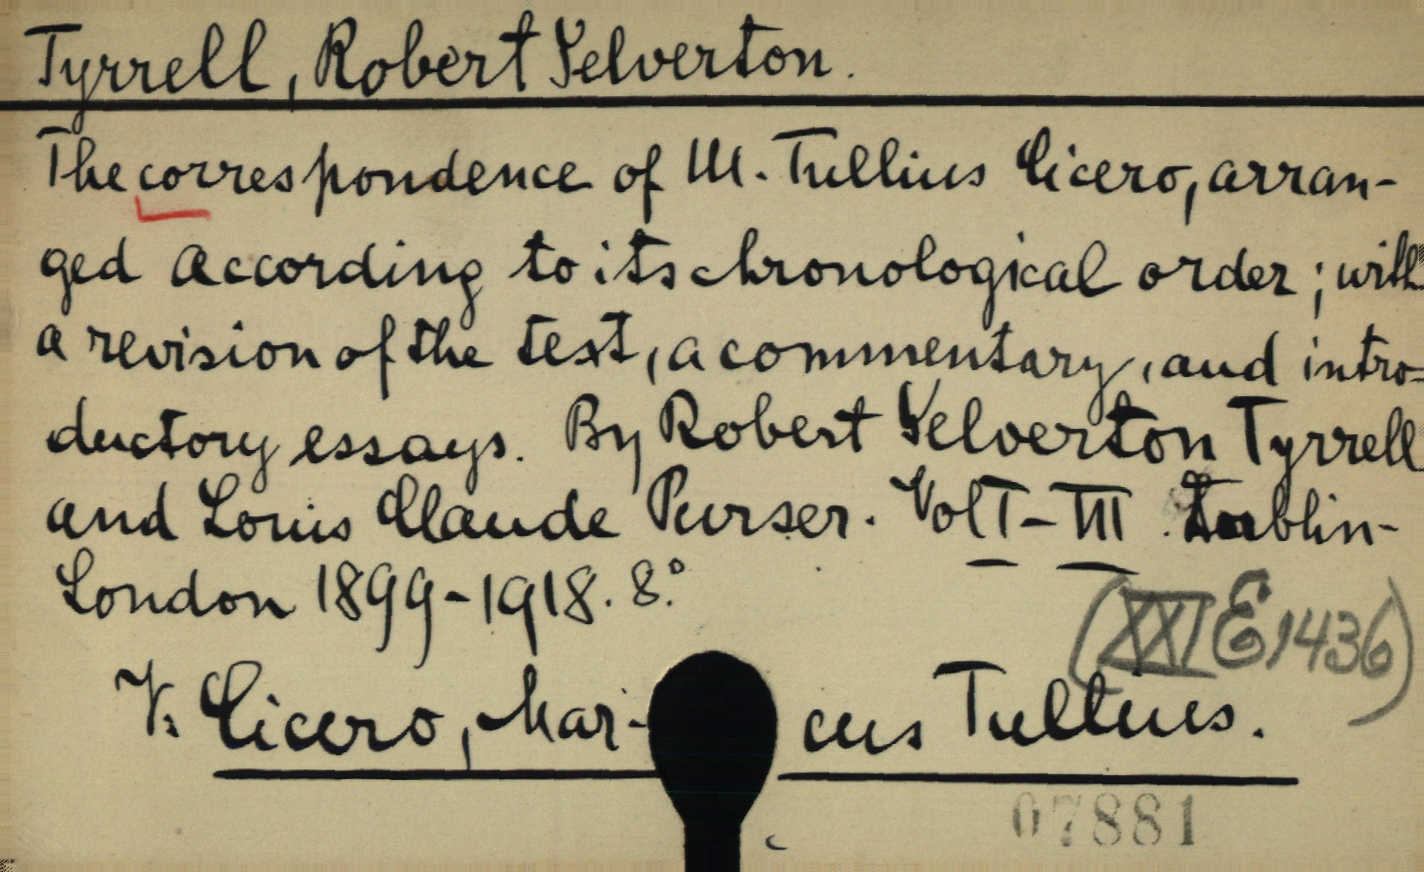 Tyrrell, Robert Yelverton.
The correspondence of M. Tullius Cicero, arran-
ged according to its chronological order; with
a revision of the text, a commentary, and intro=
ductory essays. By Robert Yelverton Tyrrell
and Louis Claude Purser. Vol I-III. Dublin-
London 1899-1918. 8.°
(XXI E 1436)
V. Cicero, Mar-cus Tullius.
07881